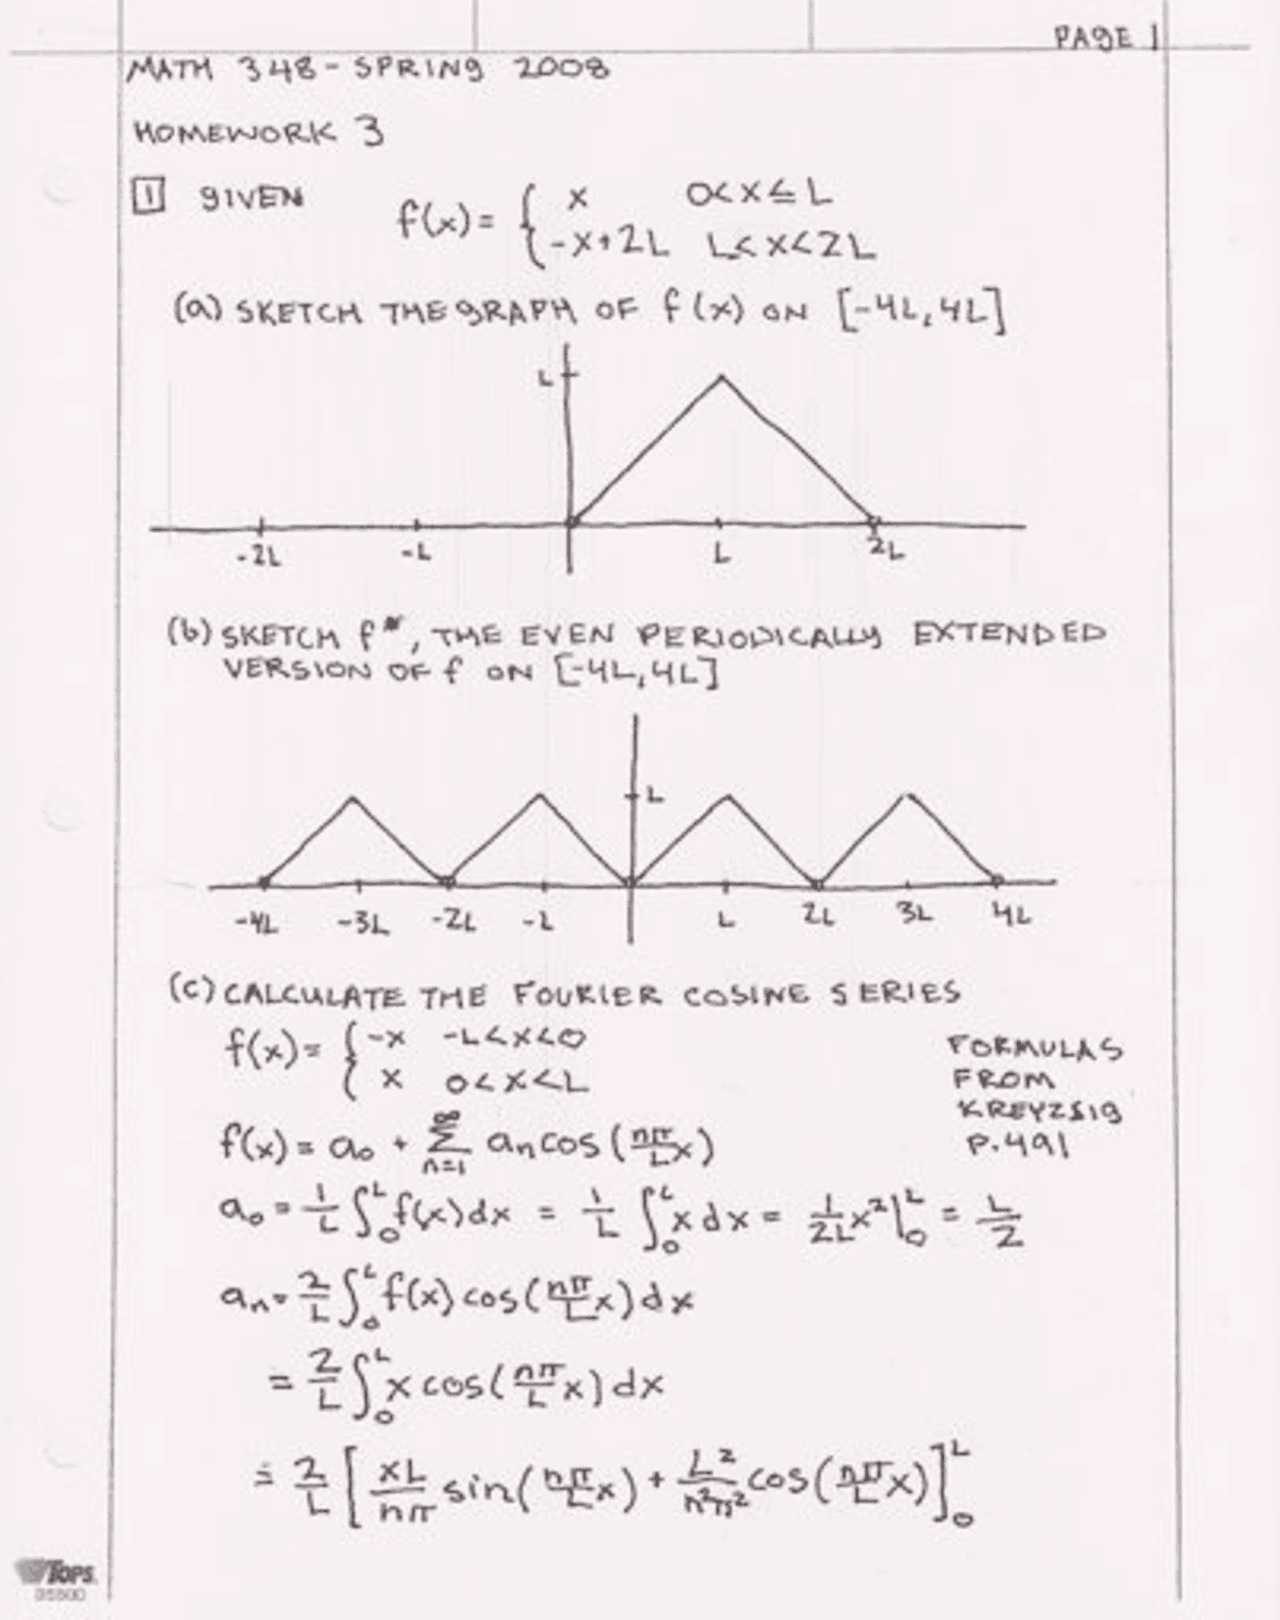 PAGE 1
MATH 348 - SPRING 2008
HOMEWORK 3
1 GIVEN f(x) = { x 0<x≤L
-x+2L L<x<2L
(a) SKETCH THE GRAPH OF f(x) ON [-4L,4L]
L
-2L -L L 2L
(b) SKETCH f*, THE EVEN PERIODICALLY EXTENDED
VERSION OF f ON [-4L,4L]
L
-4L -3L -2L -L L 2L 3L 4L
(c) CALCULATE THE FOURIER COSINE SERIES
f(x) = { -x -L<x<0
x 0<x<L
FORMULAS
FROM
KREYZSIG
P.491
f(x) = a₀ + ∑_{n=1}^{∞} aₙ cos(nπ/L x)
a₀ = 1/L ∫₀ᴸ f(x)dx = 1/L ∫₀ᴸ x dx = 1/2L x²|₀ᴸ = L/2
aₙ = 2/L ∫₀ᴸ f(x) cos(nπ/L x) dx
= 2/L ∫₀ᴸ x cos(nπ/L x) dx
= 2/L [ xL/nπ sin(nπ/L x) + L²/n²π² cos(nπ/L x) ]₀ᴸ
TOPS
35500